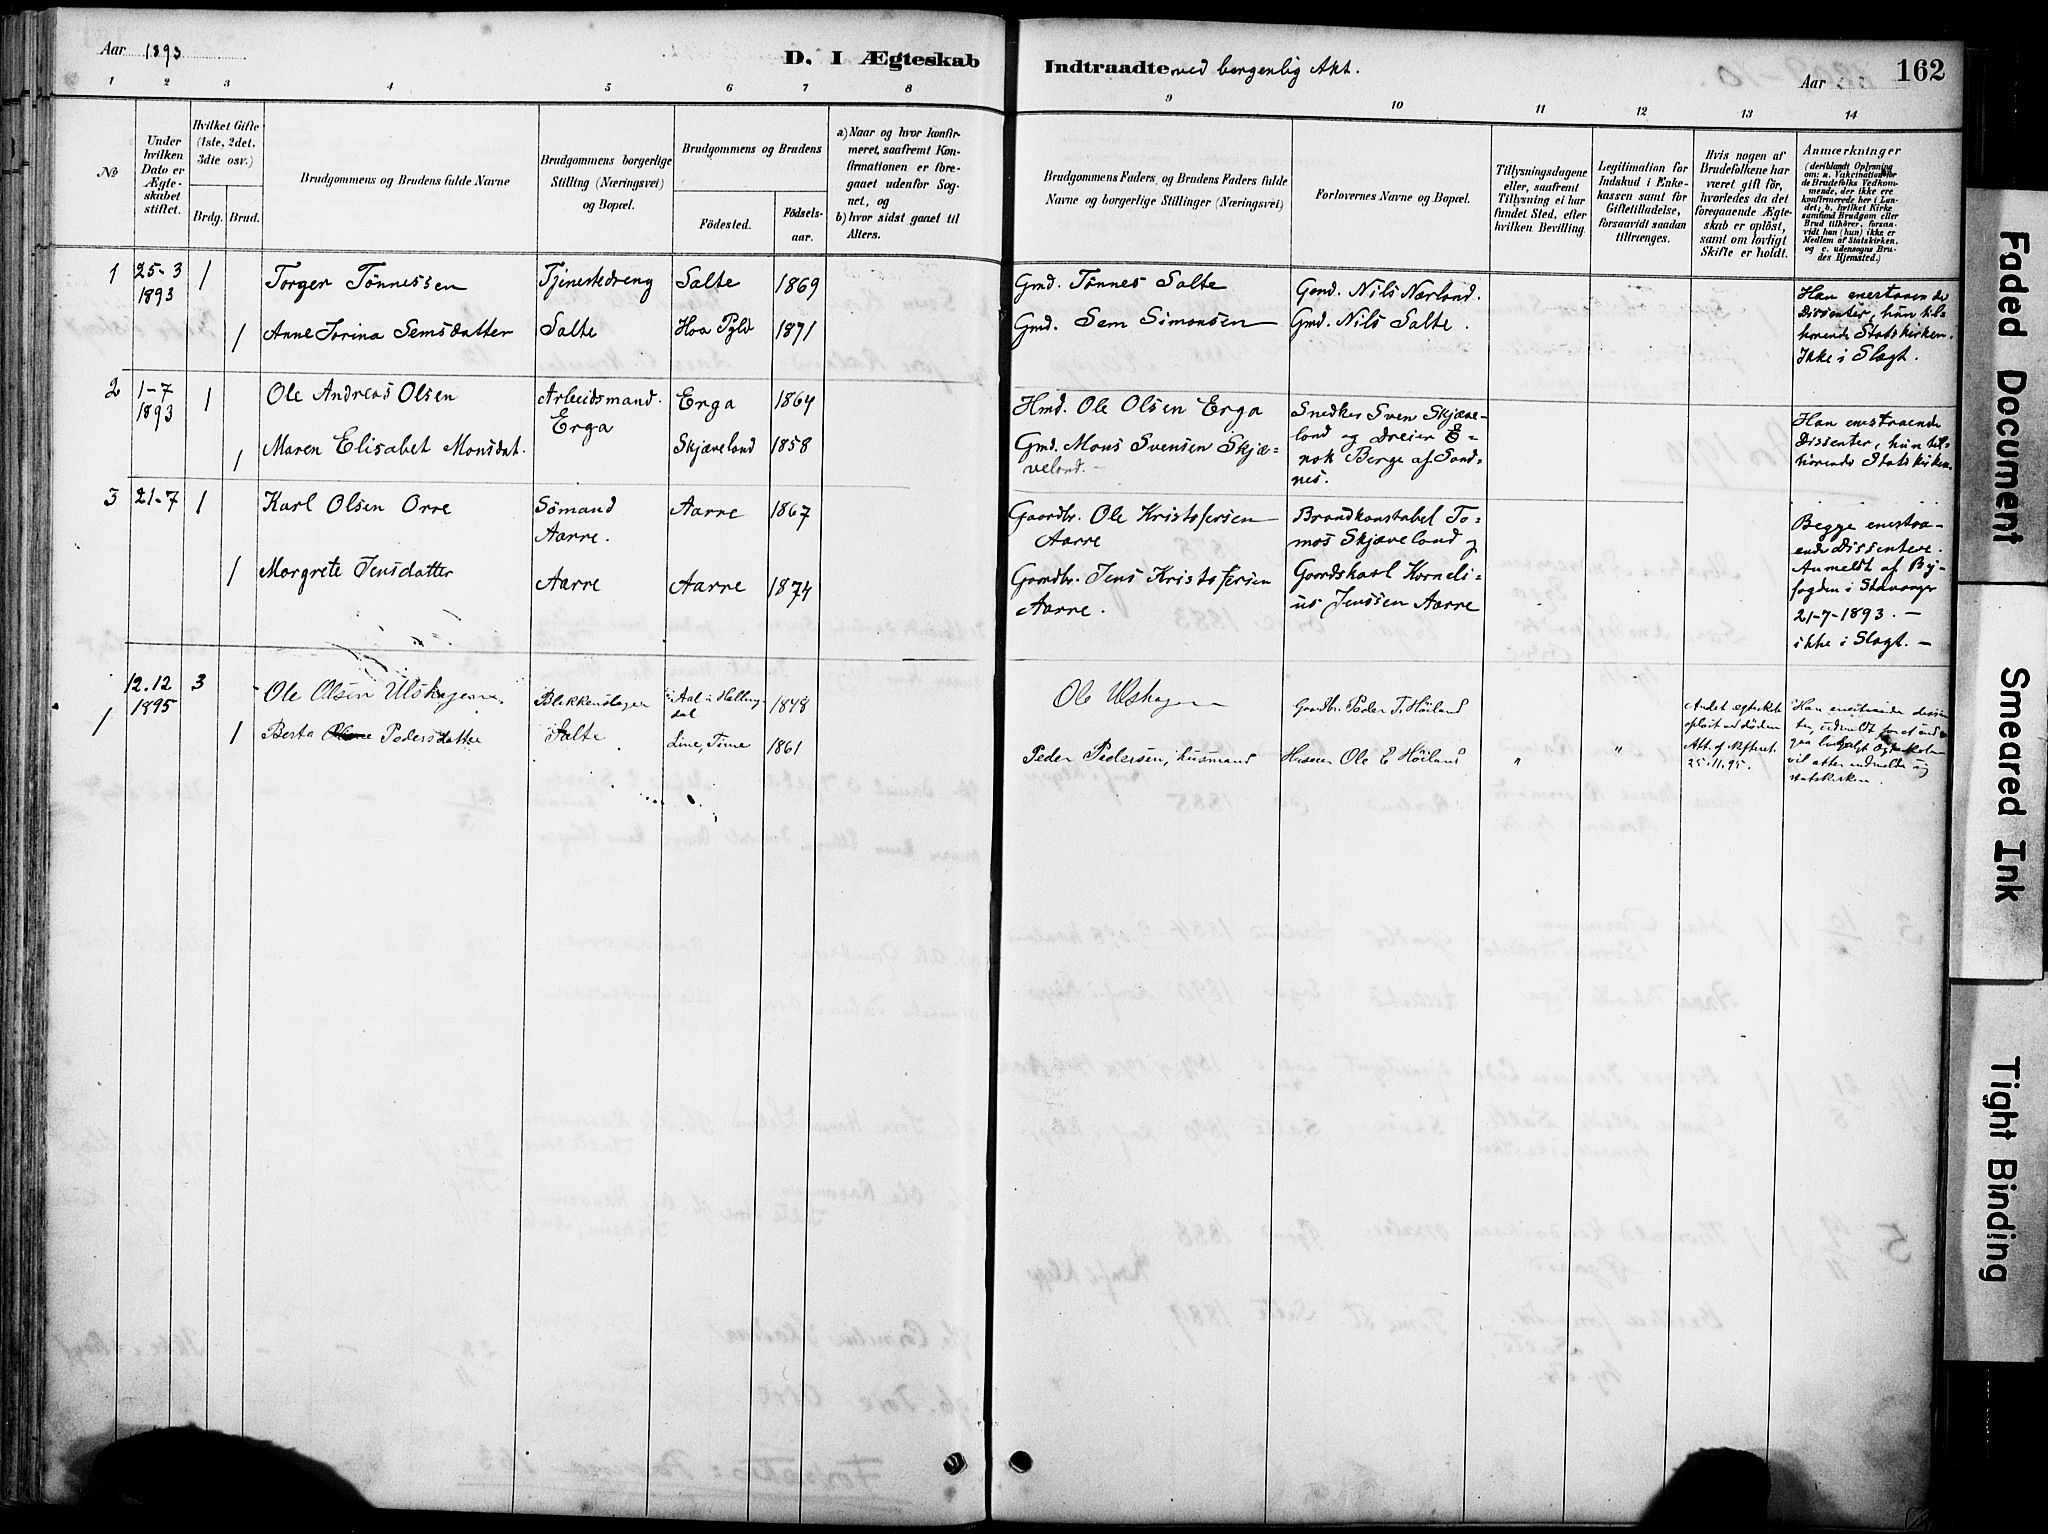 Aar 1893
D. I Ægteskab
Indtraadte ved borgenlig Akt.
Aar
162
1 2 3 4 5 6 7 8
9 10 11 12 13 14
No
Under hvilken Dato er Ægteskabet stiftet.
Hvilket Gifte (1ste, 2det, 3die osv.)
Brdg. Brud.
Brudgommens og Brudens fulde Navne
Brudgommens borgerlige Stilling (Næringsvei) og Bopæl.
Brudgommens og Brudens
Födested.
Födselsaar.
a) Naar og hvor konfirmeret, saafremt Konfirmationen er foregaaet udenfor Sognet, og
b) hvor sidst gaaet til Alters.
Brudgommens Faders, og Brudens Faders fulde Navne og borgerlige Stillinger (Næringsvei)
Forlovernes Navne og Bopæl.
Tillysningsdagene eller, saafremt Tillysning ei har fundet Sted, efter hvilken Bevilling.
Legitimation for Indskud i Enkekassen samt for Giftetilladelse, forsaavidt saadan tiltrænges.
Hvis nogen af Brudefolkene har været gift för, hvorledes da det foregaaende Ægteskab er oplöst, samt om lovligt Skifte er holdt.
Anmærkninger
(deriblandt Oplysning om: a. Vakcination for de Brudefolks Vedkommende, der ikke ere konfirmerede her i Landet; b. hvilket Kirkesamfund Brudgom eller Brud tilhörer, forsaavidt han (hun) ikke er Medlem af Statskirken, og c. udensogns Brudes Hjemsted.)
1 25-3 1893 1 Torger Tönnessen Tjenestedreng Salte 1869 Gmd. Tönnes Salte Gmd. Nils Nærland.
1 Anne Torina Semsdatter Salte Hoa Pgld 1871 Gmd. Sem Simonsen Gmd. Nils Salte.
Han enestaaende
Dissenter, hun tilhörende Statskirken.
Ikke i Slægt.
2 1-7 1893 1 Ole Andreas Olsen Arbeidsmand. Erga Erga 1864 Hmd. Ole Olsen Erga Snedker Sven Skjæve-
1 Maren Elisabet Monsdat. Skjæveland 1858 Gmd. Mons Svensen Skjæ-
veland. -
land og Dreier E-
nok Berge af Sand-
nes.
Han enestaaende
Dissenter, hun til-
hörende Statskirken.
3 21-7 1 Karl Olsen Orre Sömand Aarre. Aarre 1867 Gaardbr. Ole Kristofersen
Aarre
Brandkonstabel To-
mas Skjæveland og
1 Margrete Jensdatter Aarre Aarre 1874 Gaardbr. Jens Kristofersen
Aarre.
Gaardskarl Korneli-
us Jenssen Aarre
Begge enestaa-
ende Dissentere.
Anmeldt af By-
fogden i Stavanger
21-7-1893. -
ikke i Slægt. -
1 12.12 1895 3 Ole Olsen Ulshagen. Blikkenslager Aal i Halling-
dal 1848 Ole Ulshagen Gaardbr. Peder T. Höiland
1 Berta Pedersdatter Salte Line, Time 1861 Peder Pedersen, husmand Ole E Höiland " "
Andet egteskab
oplöst ved döden
Att. af
25.11.95.
Han enestaaende dissen-
ter, udmeldt for at ind-
gaa
vil atter indmelde sig
statskirken.
Faded Document
Smeared Ink
Tight Binding